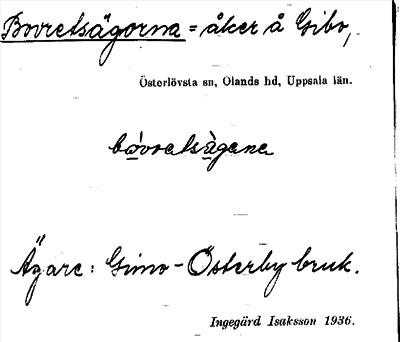 Bovretsägorna = åker å Gibo,
Österlövsta sn, Olands hd, Uppsala län.
bó̲vretsà̲gena
Ägare: Gimo-Österby bruk.
Ingegärd Isaksson 1936.